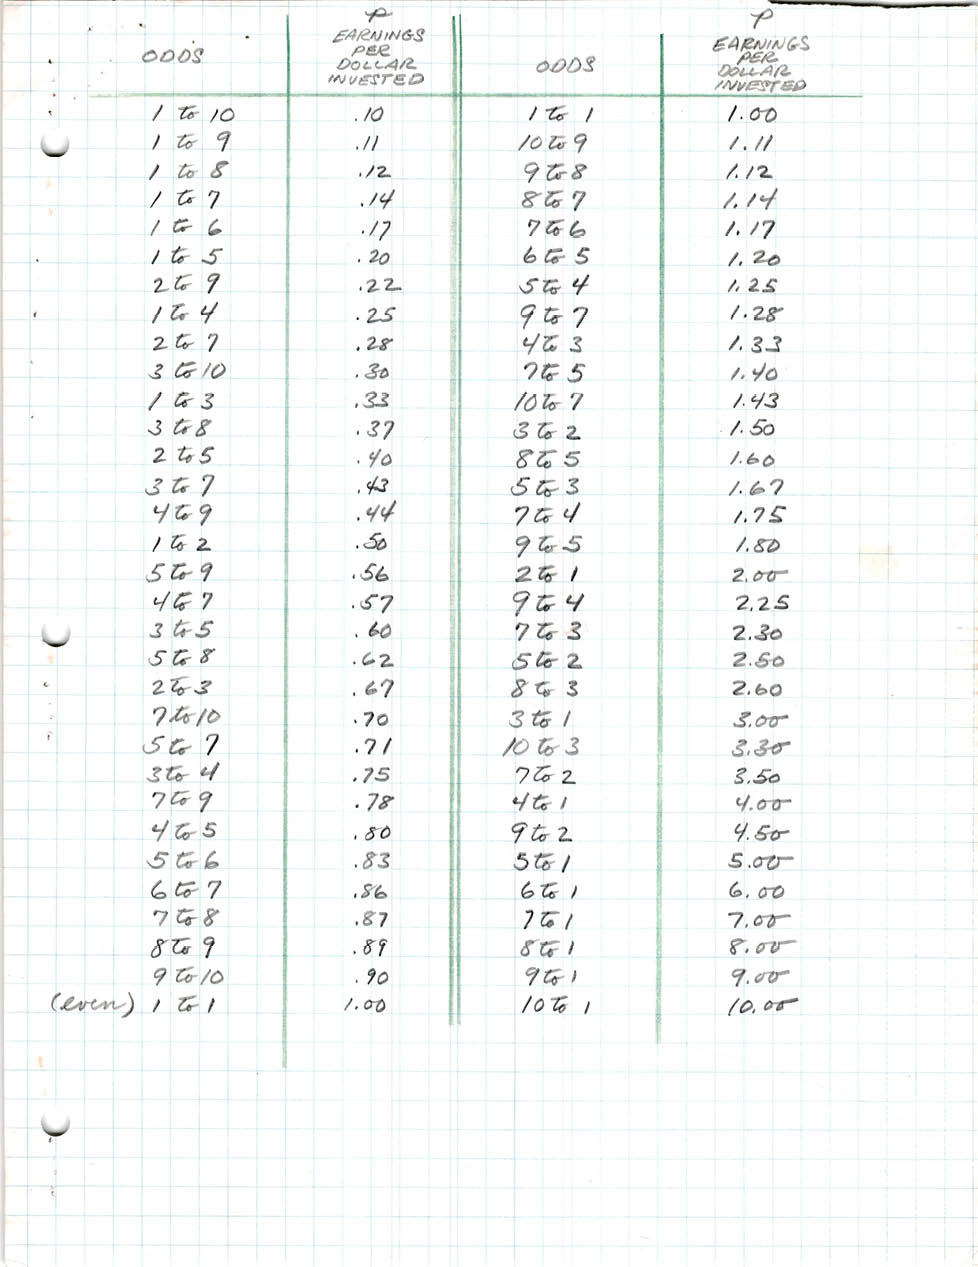 ODDS P EARNINGS PER DOLLAR INVESTED ODDS P EARNINGS PER DOLLAR INVESTED
1 to 10 .10 1 to 1 1.00
1 to 9 .11 10 to 9 1.11
1 to 8 .12 9 to 8 1.12
1 to 7 .14 8 to 7 1.14
1 to 6 .17 7 to 6 1.17
1 to 5 .20 6 to 5 1.20
2 to 9 .22 5 to 4 1.25
1 to 4 .25 9 to 7 1.28
2 to 7 .28 4 to 3 1.33
3 to 10 .30 7 to 5 1.40
1 to 3 .33 10 to 7 1.43
3 to 8 .37 3 to 2 1.50
2 to 5 .40 8 to 5 1.60
3 to 7 .43 5 to 3 1.67
4 to 9 .44 7 to 4 1.75
1 to 2 .50 9 to 5 1.80
5 to 9 .56 2 to 1 2.00
4 to 7 .57 9 to 4 2.25
3 to 5 .60 7 to 3 2.30
5 to 8 .62 5 to 2 2.50
2 to 3 .67 8 to 3 2.60
7 to 10 .70 3 to 1 3.00
5 to 7 .71 10 to 3 3.30
3 to 4 .75 7 to 2 3.50
7 to 9 .78 4 to 1 4.00
4 to 5 .80 9 to 2 4.50
5 to 6 .83 5 to 1 5.00
6 to 7 .86 6 to 1 6.00
7 to 8 .87 7 to 1 7.00
8 to 9 .89 8 to 1 8.00
9 to 10 .90 9 to 1 9.00
(even) 1 to 1 1.00 10 to 1 10.00